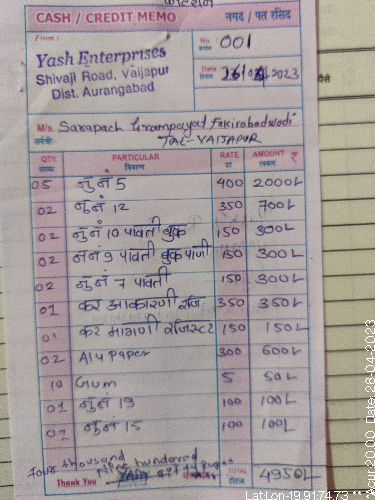 CASH / CREDIT MEMO
नगद / पत रसिद
From :
Yash Enterprises
Shivaji Road, Vaijapur
Dist. Aurangabad
No. 001
Date 26/04/2023
M/s. Sarapach Grampayat Fakirabadwadi
TAL-VAIJAPUR
QTY. PARTICULAR RATE AMOUNT ₹
संख्या विवरण दर रक्कम
05 नुनं 5 400 2000/-
02 नुनं 12 350 700/-
02 नुनं 10 पावती बुक 150 300/-
02 नंनं 9 पावती बुक पाणी 150 300/-
02 नुनं 7 पावती 150 300/-
01 कर आकारणी रजि 350 350/-
01 कर मागणी रजिस्टर 150 150/-
02 A14 Paper 300 600/-
10 Gum 5 50/-
01 नुनं 19 100 100/-
01 नुनं 15 100 100/-
Four thousand nine hundered
Thank You
TOTAL 4950/-
टोटल